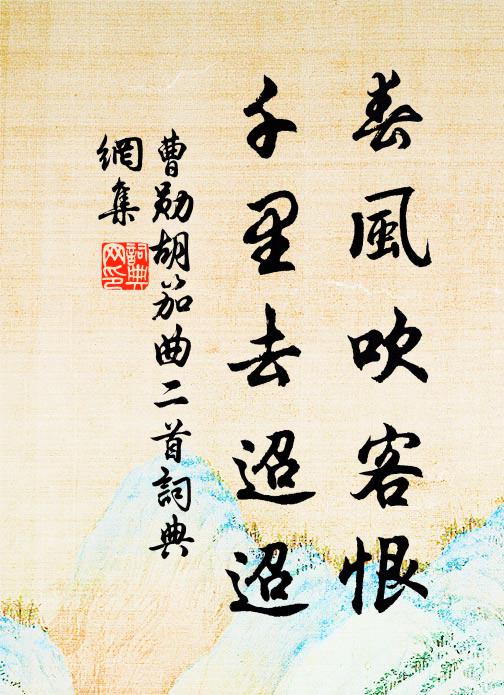 春風吹客恨
千里去迢迢
曹勛胡笳曲二首詞典
網集
詞典
网印